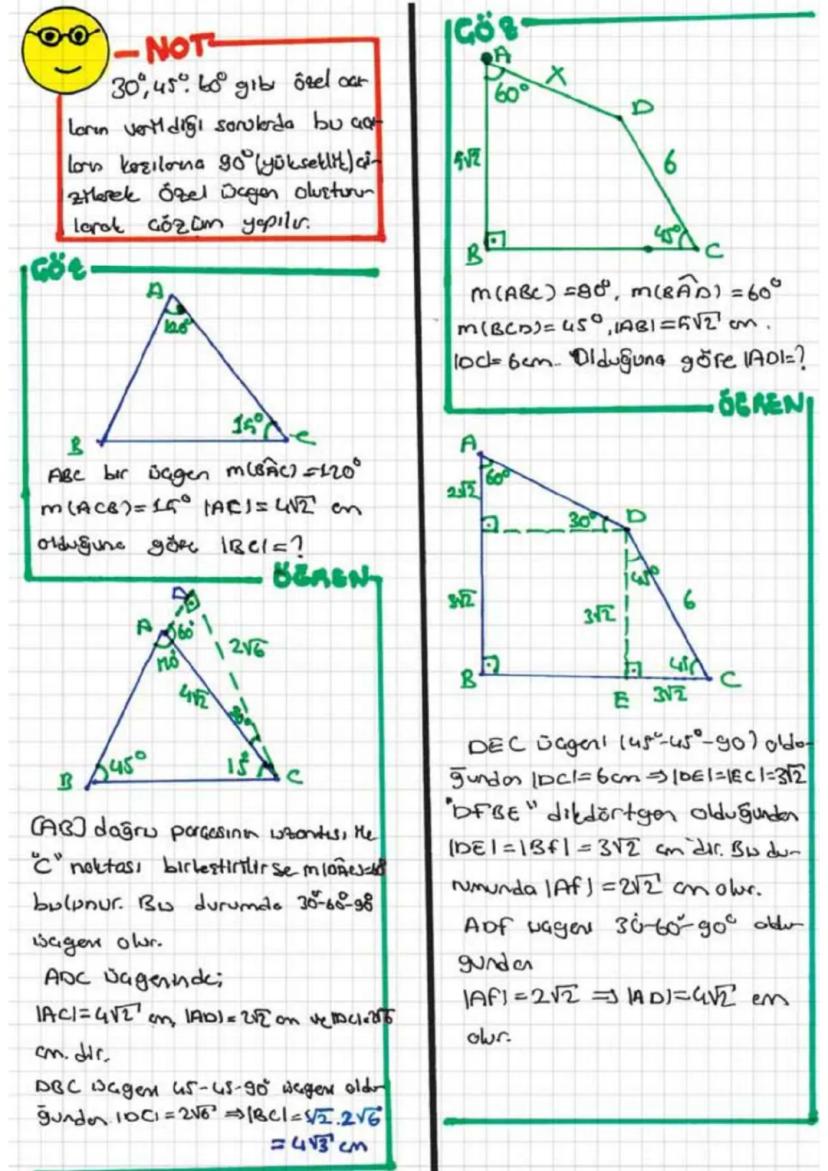 NOT
30°, 45°, 60° gibi özel açı-
ların verildiği sorularda bu açı-
ların karşılarına 90° (yükseklik) çi-
zilerek özel üçgen oluşturu-
larak çözüm yapılır.
GÖR
A
120°
B
15°
C
ABC bir üçgen m(BÂC) = 120°
m(ACB) = 15° |AC| = 4√2 cm
olduğuna göre |BC| = ?
ÖĞREN
D
A
60°
120°
2√6
4√2
B
45°
15°
C
[AB] doğru parçasının uzantısı ile
"C" noktası birleştirilirse
bulunur. Bu durumda 30°-60°-90°
üçgeni olur.
ADC üçgeninde;
|AC| = 4√2 cm, |AD| = 2√2 cm ve |DC| = 2√6
cm. dir.
DBC üçgeni 45-45-90° üçgeni oldu-
ğundan |DC| = 2√6 ⇒ |BC| = √2.2√6
= 4√3 cm
GÖR
A
60°
X
D
5√2
6
45°
B
C
m(ABC) = 90°, m(BÂD) = 60°
m(BCD) = 45°, |AB| = 5√2 cm.
|DC| = 6cm. Olduğuna göre |AD| = ?
ÖĞREN
A
60°
2√2
30°
D
45°
3√2
3√2
6
45°
B
E
3√2
C
DEC üçgeni (45°-45°-90) oldu-
ğundan |DC| = 6cm ⇒ |DE| = |EC| = 3√2
"DFBE" dikdörtgen olduğundan
|DE| = |BF| = 3√2 cm dir. Bu du-
rumunda |AF| = 2√2 cm olur.
ADF üçgeni 30-60°-90° oldu-
ğundan
|AF| = 2√2 ⇒ |AD| = 4√2 cm
olur.